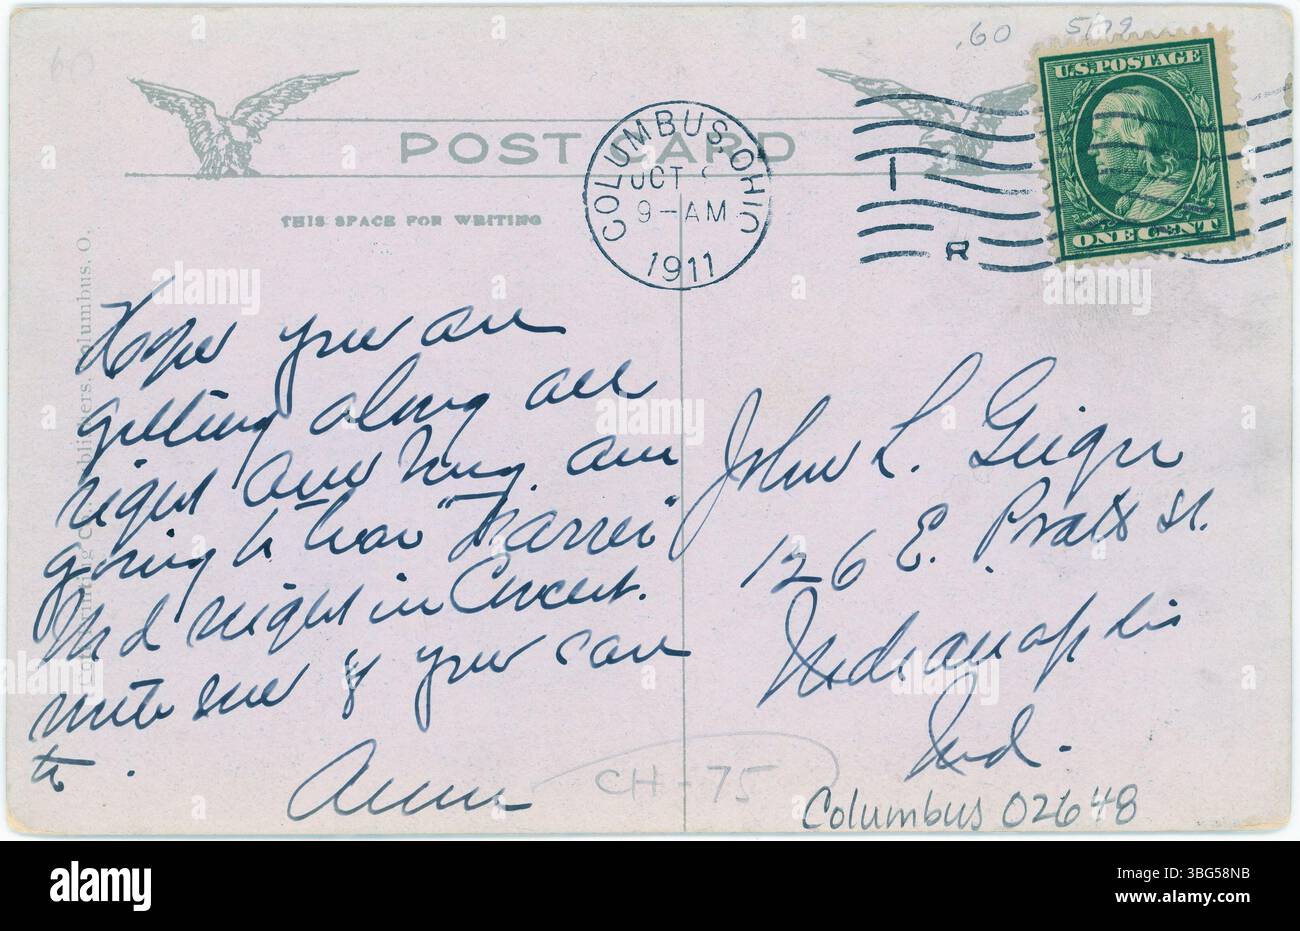 .60
POST CARD
THIS SPACE FOR WRITING
COLUMBUS, OHIO
OCT
9-AM
1911
1
R
U.S. POSTAGE
ONE CENT
Hope you are
getting along all
right and am
going to hear
Wed night in
write me if you can
to.
Anna
John L. Geiger
126 E. Pratt St.
Indianapolis
Ind.
CH-75
Columbus 02648
Columbus, O.
alamy
Image ID: 3BG58NB
www.alamy.com